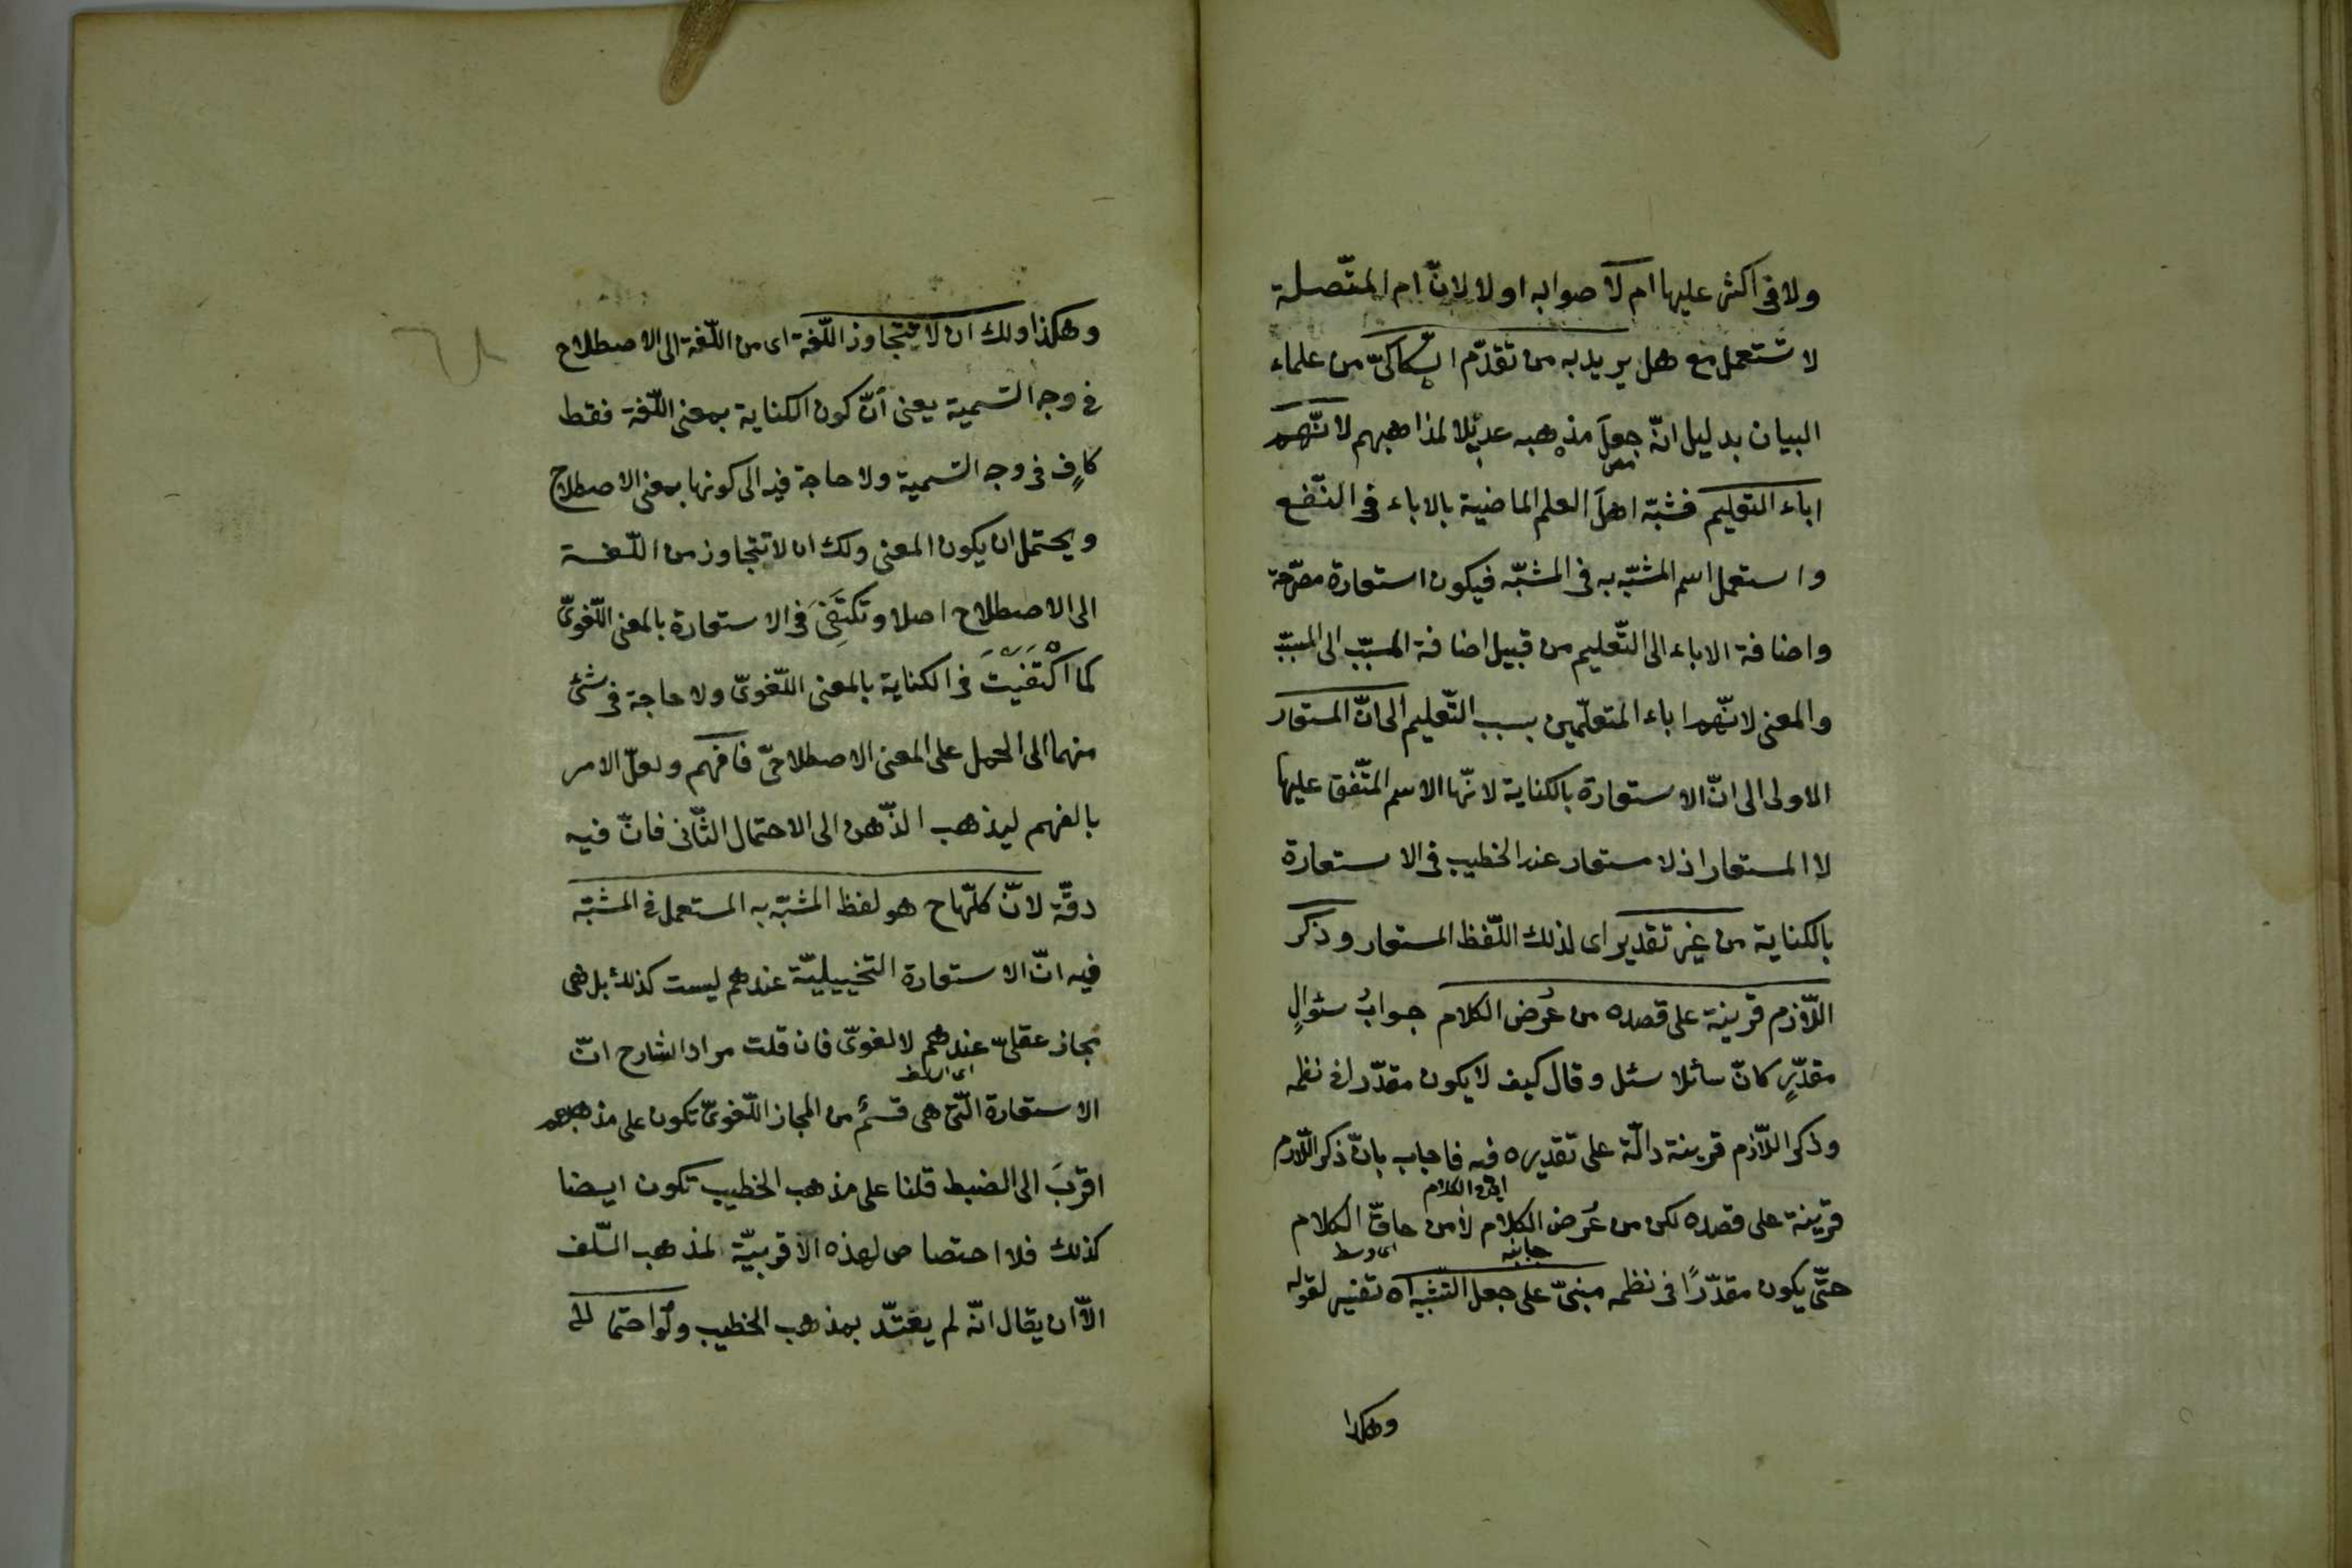 ولا فى اكثر عليها ام لا صوابه او لا لانّ ام المتّصلة
لا تستعمل مع هل يريد به من تقدّم السّكاكىّ من علماء
البيان بدليل انّه جعلَ مذهبه عديلا لمذاهبهم لانّهم
اباء التعليم فشبّه اهلَ العلم الماضية بالاباء فى النّفع
واستعمل اسم المشبّه به فى المشبّه فيكون استعارة مصرّحة
واضافة الاباء الى التّعليم من قبيل اضافة المسبّب الى السبب
والمعنى لانّهم اباء المتعلّمين بسبب التّعليم الى انّ المستعار
الاولى الى انّ الاستعارة بالكناية لانّها الاسم المتّفق عليها
لا المستعار اذ لا مستعار عند الخطيب فى الاستعارة
بالكناية من غير تقدير اى لذلك اللّفظ المستعار وذكر
اللّازم قرينة على قصده من عُرض الكلام جوابُ سئوالٍ
مقدّرٍ كانّ سائلا سئل وقال كيف لا يكون مقدّرا فى نظمه
وذكر اللّازم قرينة دالّة على تقديره فيه فاجاب بانّ ذكر اللّازم
قرينة على قصده لكن من عُرض الكلام لا من حاقّ الكلام
جانبه
اى وسط
حتّى يكون مقدّرًا فى نظمه مبنىّ على جعل التّشبيه اه تفسير لقوله
وهكذا
وهكذا ولك ان لا تتجاوز اللّغة اى من اللّغة الى الاصطلاح
فى وجه التسمية يعنى انّ كون الكناية بمعنى اللّغة فقط
كافٍ فى وجه التسمية ولا حاجة فيه الى كونها بمعنى الاصطلاح
ويحتمل ان يكون المعنى ولك ان لا تتجاوز من اللّغة
الى الاصطلاح اصلا وتكتَفىَ فى الاستعارة بالمعنى اللّغوىّ
كما اكْتَفَيْتَ فى الكناية بالمعنى اللّغوىّ ولا حاجة فى شئ
منهما الى الحمل على المعنى الاصطلاحىّ فافهم ولعلّ الامر
بالفهم ليذهب الذّهن الى الاحتمال الثّانى فانّ فيه
دقّة لانّ كلّها ح هو لفظ المشبّه به المستعمل فى المشبّه
فيه انّ الاستعارة التخييليّة عندهم ليست كذلك بل هى
مجاز عقلىّ عندهم لا لغوىّ فان قلت مراد الشارح انّ
اى السلف
الاستعارة الّتى هى قسمٌ من المجاز اللّغوىّ تكون على مذهبهم
اقربَ الى الضبط قلنا على مذهب الخطيب تكون ايضا
كذلك فلا اختصاص لهذه الاقربيّة لمذهب السّلف
الاّ ان يقال انّه لم يعتدّ بمذهب الخطيب ولو احتمالا